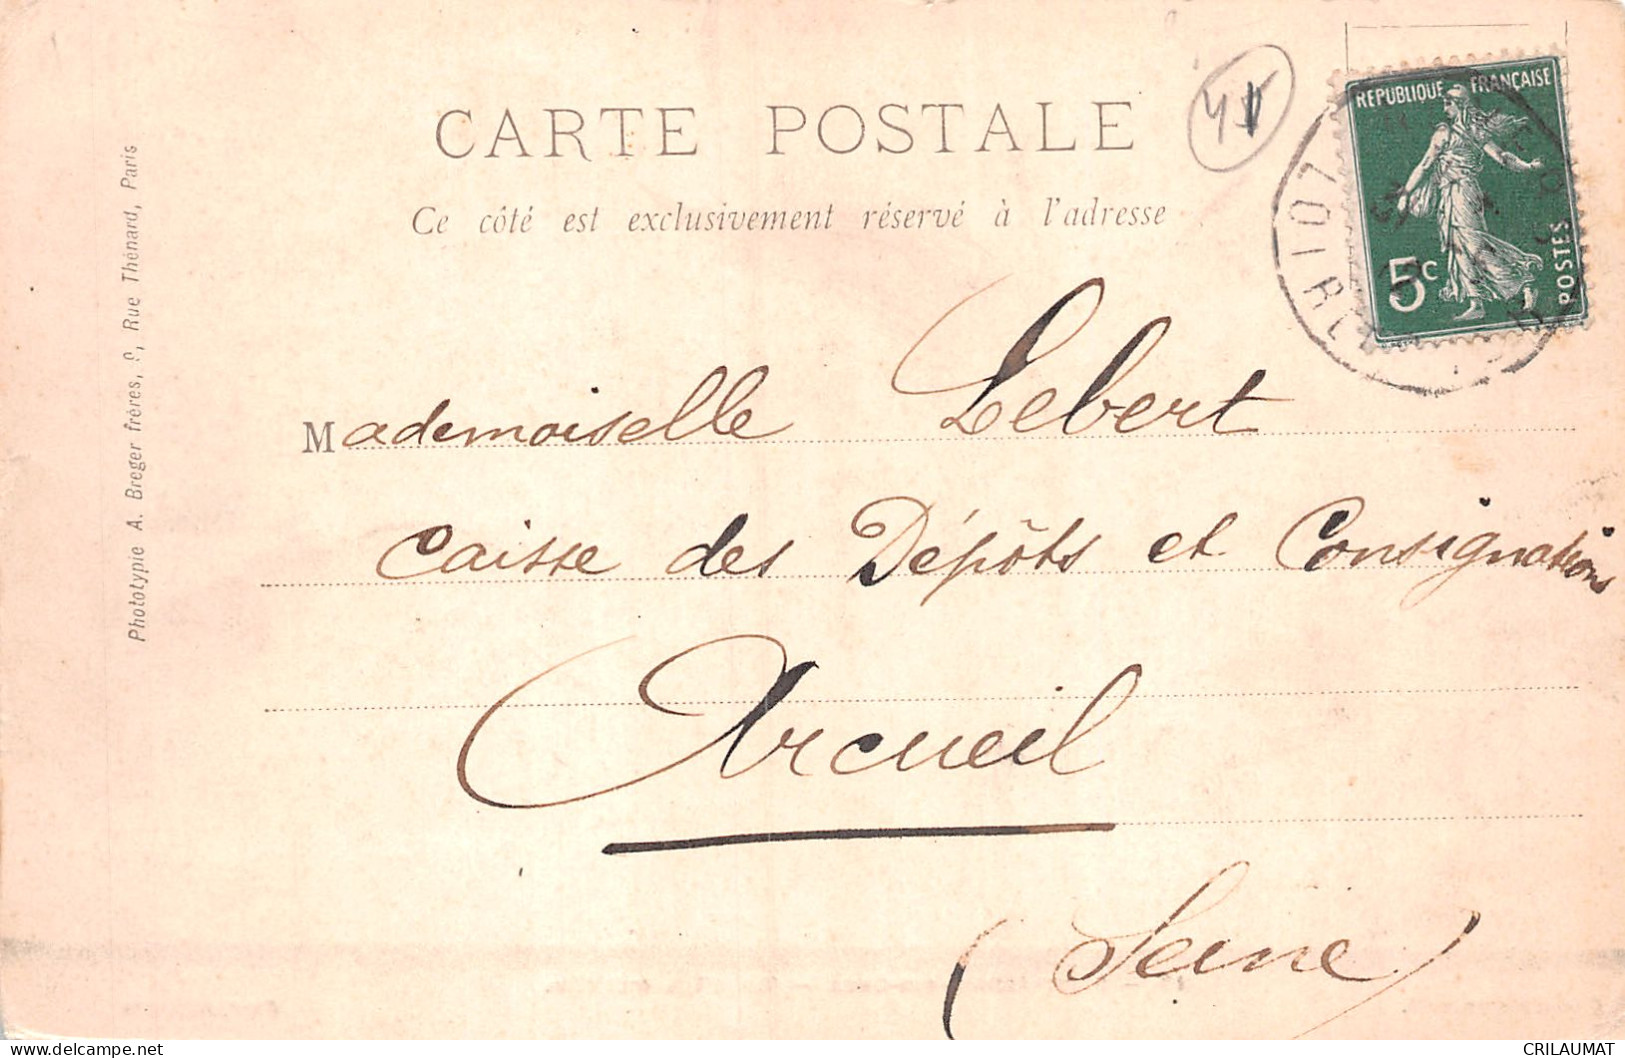 CARTE POSTALE
Ce côté est exclusivement réservé à l'adresse
RÉPUBLIQUE FRANÇAISE
5c
POSTES
Mademoiselle Lebert
Caisse des Dépôts et Consignations
Arcueil
(Seine)
Photolypie A. Breger frères, 9, Rue Thénard, Paris
delcampe.net
CRILAUMAT